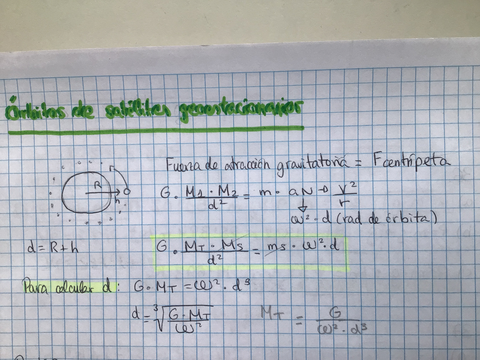 Órbitas de satélites geoestacionarios
Fuerza de atracción gravitatoria = Fcentrípeta
R
h
G · M1 · M2 / d² = m · aN → v² / r
ω² · d (rad de órbita)
d = R + h
G · MT · Ms / d² = ms · ω² · d
Para calcular d: G · MT = ω² · d³
d = ³√(G · MT / ω²)
MT = G / ω² · d³